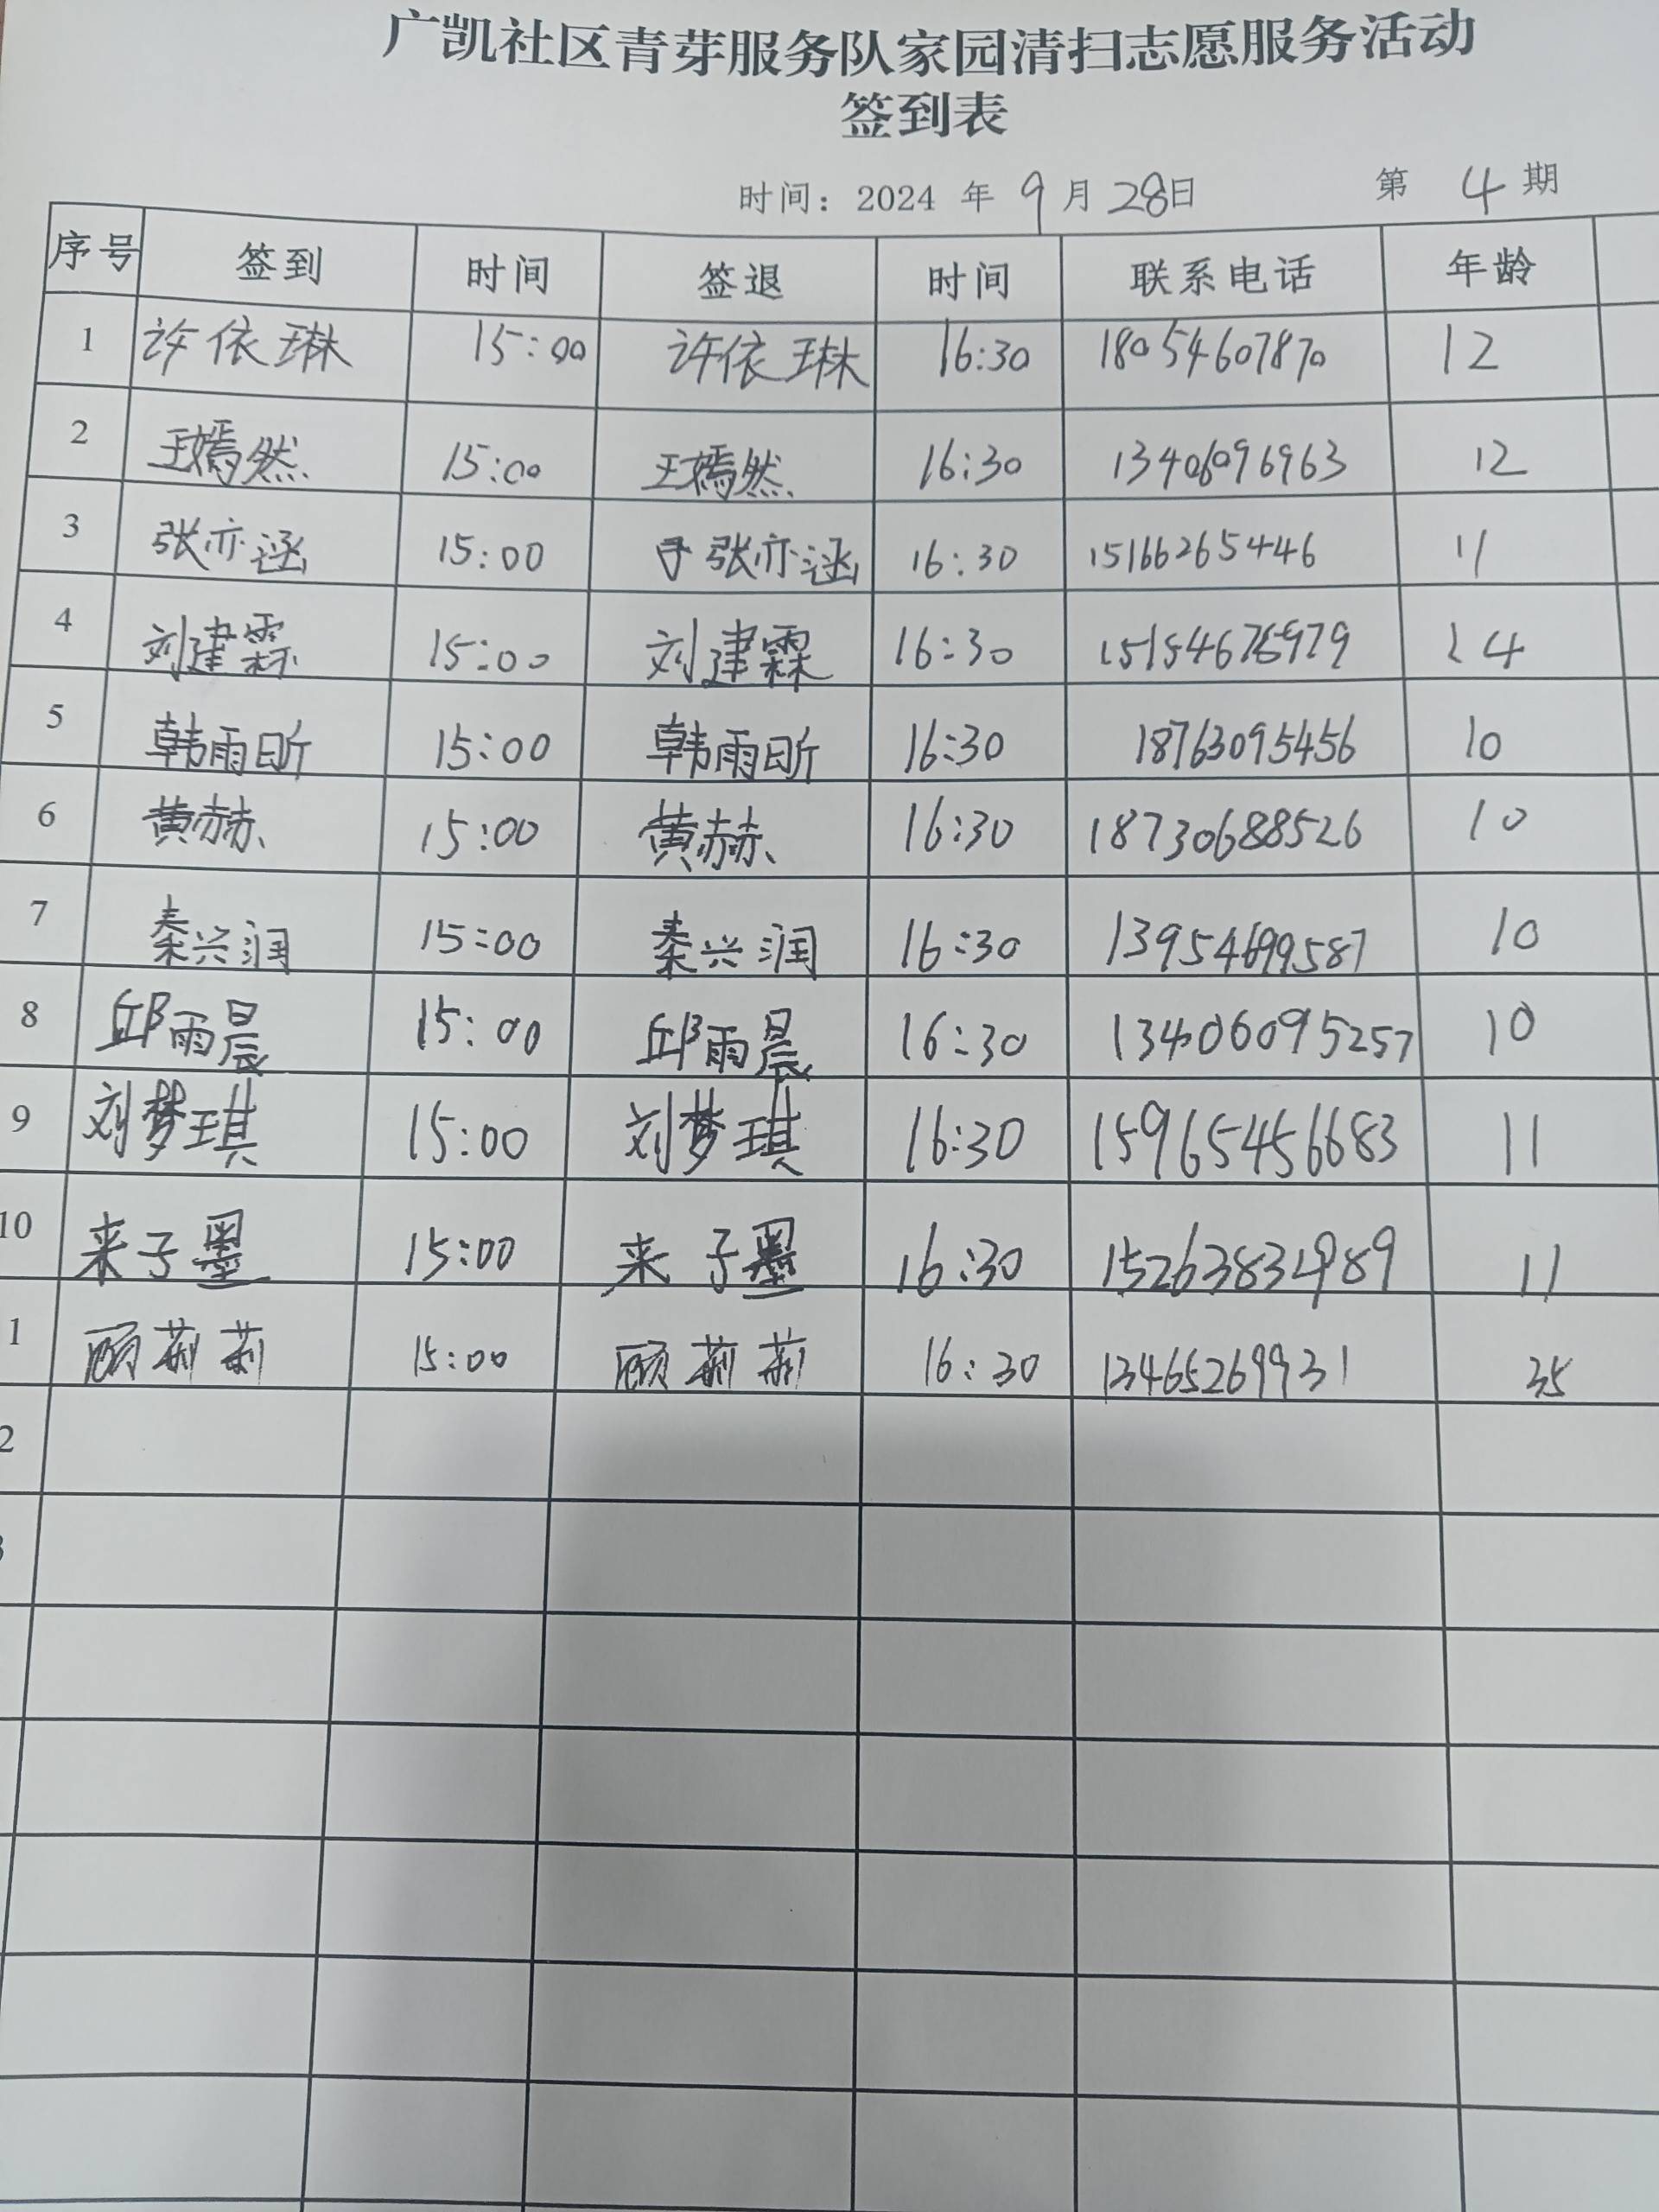 广凯社区青芽服务队家园清扫志愿服务活动
签到表
时间：2024 年 9 月 28日 第 4 期
序号 签到 时间 签退 时间 联系电话 年龄
1 许依琳 15:00 许依琳 16:30 18054607870 12
2 王嫣然 15:00 王嫣然 16:30 13406096963 12
3 张亦涵 15:00 张亦涵 16:30 15166265446 11
4 刘建霖 15:00 刘建霖 16:30 14
5 韩雨昕 15:00 韩雨昕 16:30 18763095456 10
6 黄赫 15:00 黄赫 16:30 18730688526 10
7 秦兴润 15:00 秦兴润 16:30 13954699587 10
8 邱雨晨 15:00 邱雨晨 16:30 13406095257 10
9 刘梦琪 15:00 刘梦琪 16:30 15965456683 11
10 来子墨 15:00 来子墨 16:30 11
1 顾莉莉 15:00 顾莉莉 16:30 13465269931 35
2
3